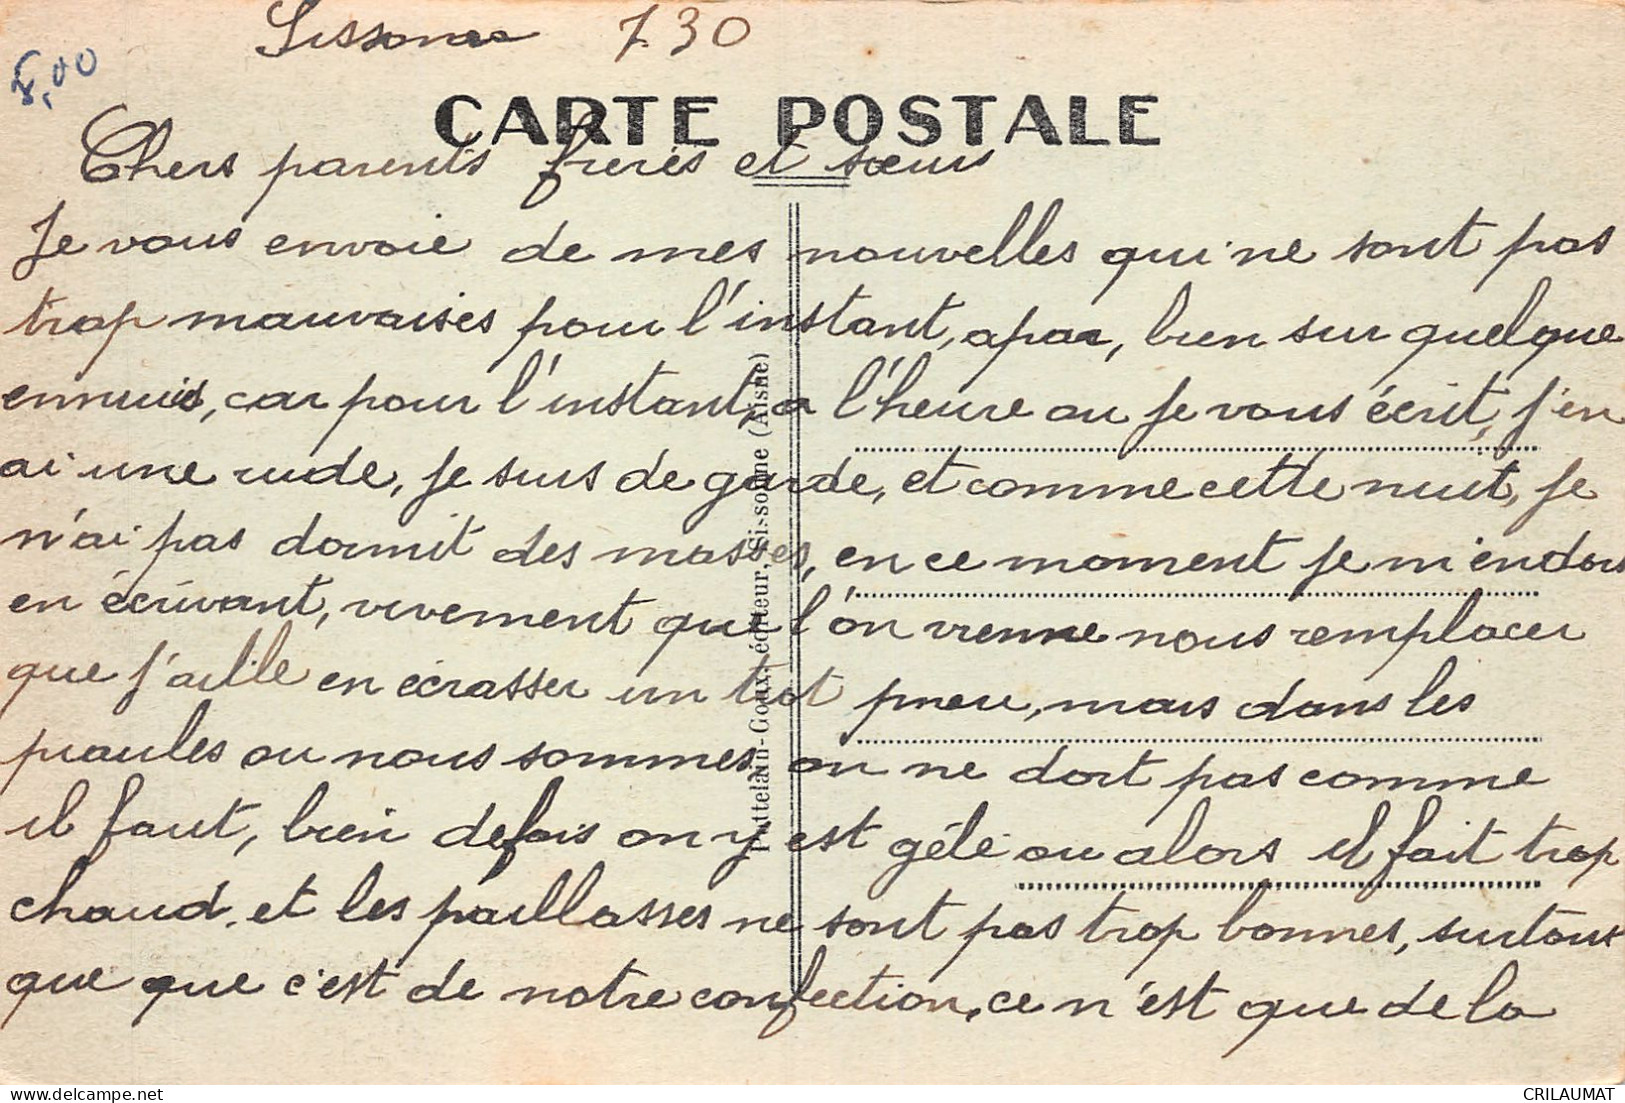 Sissonne 7 30
8,00
CARTE POSTALE
Chers parents freres et sœurs
Je vous envoie de mes nouvelles qui ne sont pas
trop mauvaises pour l'instant, apar, bien sur quelque
ennuis, car pour l'instant, a l'heure ou je vous écrit, j'en
ai une rude, je suis de garde, et comme cette nuit, je
n'ai pas dormit des masses, en ce moment je m'endors
en écrivant, vivement que l'on vienne nous remplacer
que j'aille en écrasser un tiot pneu, mais dans les
piaules ou nous sommes on ne dort pas comme
il faut, bien defois on y est gélé ou alors il fait trop
chaud, et les paillasses ne sont pas trop bonnes, surtout
que que c'est de notre confection, ce n'est que de la
Puttelain-Goux, éditeur, Sissonne (Aisne)
www.delcampe.net
CRILAUMAT